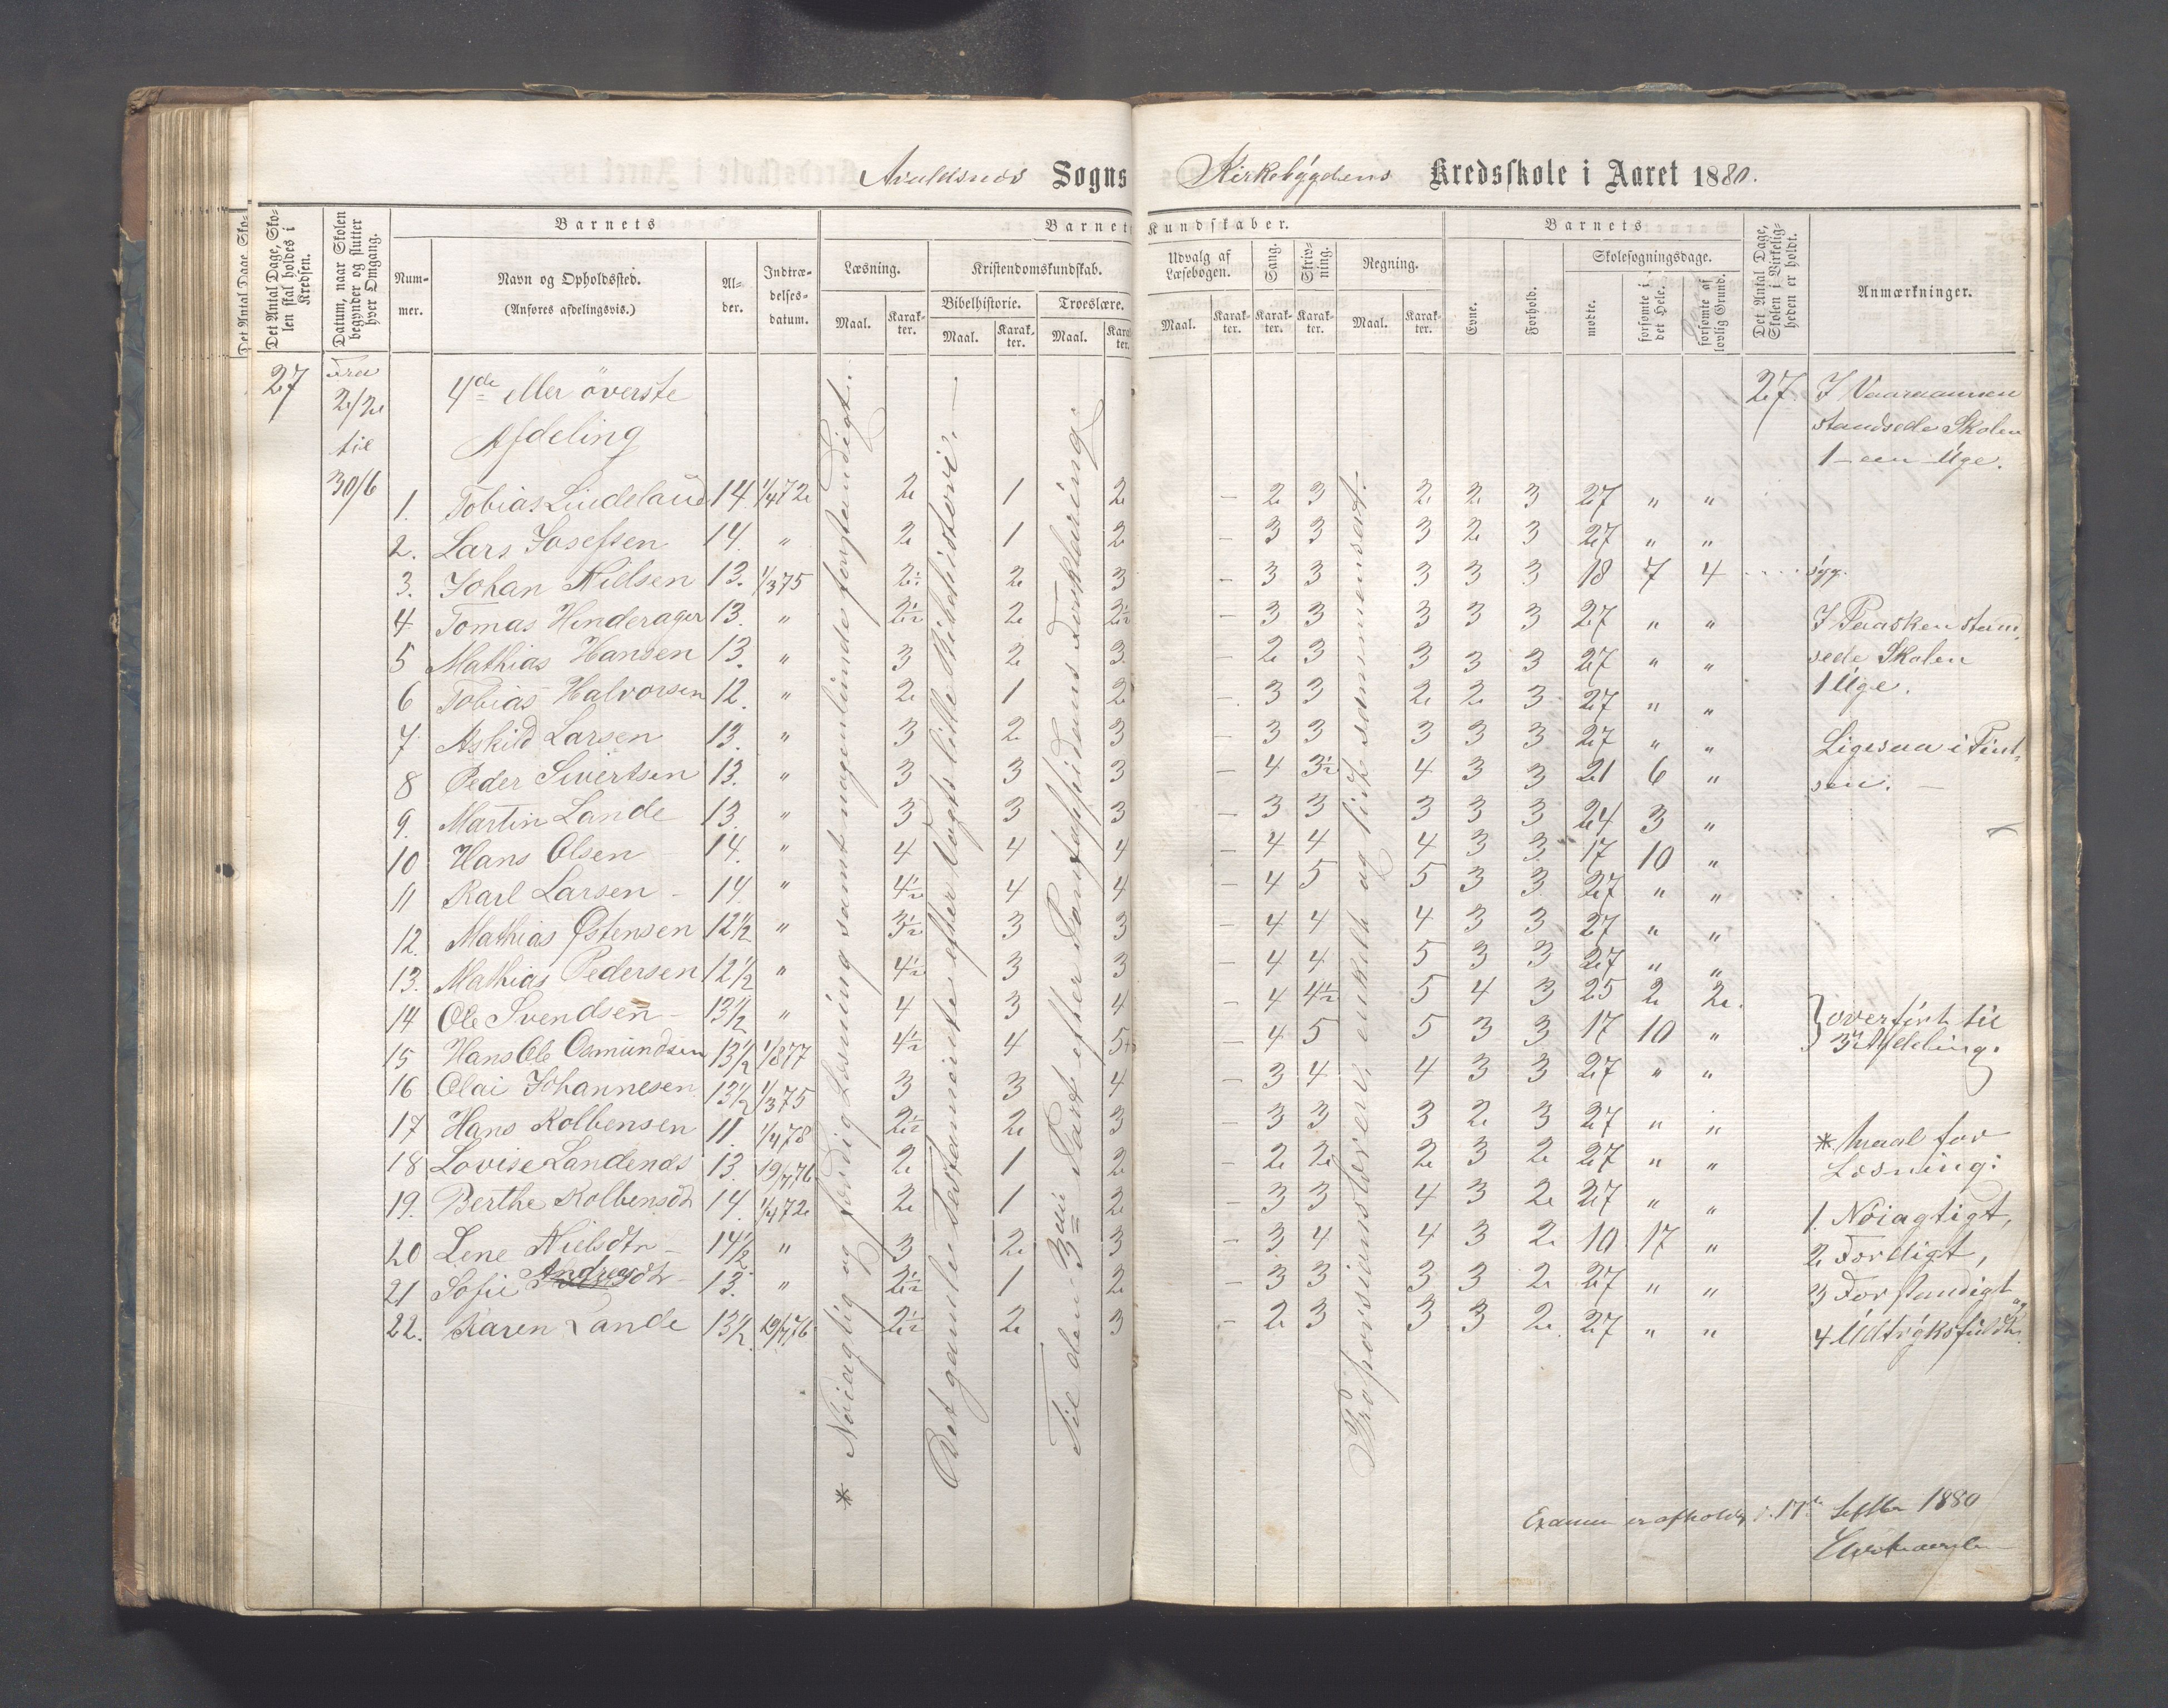 Avaldsnes Sogns Kirkebygdens Kredsskole i Aaret 1880.
Det Antal Dage, Sko-
Det Antal Dage, Sko-
len skal holdes i
Kredsen.
Datum, naar Skolen
begynder og slutter
hver Omgang.
Barnets
Num-
mer.
Navn og Opholdssted.
(Anføres afdelingsvis.)
Al-
der.
Indtræ-
delses-
datum.
Barnets Kundskaber.
Læsning.
Maal. Karak-
ter.
Kristendomskundskab.
Bibelhistorie. Troeslære.
Maal. Karak-
ter.
Maal. Karak-
ter.
Udvalg af
Læsebogen.
Maal. Karak-
ter.
Sang.
Karak-
ter.
Skriv-
ning.
Karak-
ter.
Regning.
Maal. Karak-
ter.
Barnets
Evne.
Forhold.
Skolesøgningsdage.
mødte.
forsømte i
det Hele.
forsømte af
lovlig Grund.
Det Antal Dage,
Skolen i Virkelig-
heden er holdt.
Anmærkninger.
27 Fra
2/2
til
30/6
4de eller överste
Afdeling
27 I Vaaraannen
standsede Skolen
1 - een Uge.
1. Tobias Lindeland 14 1/4 72 2 1 2 - 2 3 2 2 3 27 " "
2. Lars Josefsen 14. " 2 1 2 - 3 3 3 2 3 27 " "
3. Johan Nilsen 13. 1/3 75 2½ 2 3 - 3 3 3 3 3 18 7 4 .... syg.
4. Tomas Hinderager 13. " 2½ 2 2½ - 3 3 3 3 3 27 " " I Paasken stand-
5 Mathias Hansen 13. " 3 2 3 - 2 3 3 3 3 27 " " sede Skolen
6 Tobias Halvorsen 12. " 2 1 2 - 3 3 2 2 3 27 " " 1 Uge.
7 Askild Larsen 13. " 3 2 3 - 3 3 3 3 3 27 " " Ligesaa i Pint-
8 Peder Sivertsen 13. " 3 3 3 - 4 3½ 4 3 3 21 6 " sen. -
9. Martin Lande 13. " 3 3 3 - 3 3 3 3 3 24 3 "
10 Hans Olsen 14. " 4 4 4 - 4 4 4 3 3 17 10 "
11 Karl Larsen - 14. " 4½ 4 4 - 4 5 5 3 3 27 " "
12. Mathias Østensen 12½ " 3½ 3 3 - 4 4 4 3 3 27 " "
13. Mathias Pedersen 12½ " 4½ 3 3 - 4 4 5 3 3 27 " "
14 Ole Svendsen - 13½ " 4 3 4 - 4 4½ 5 4 3 25 2 2. } overført til
15 Hans Ole Osmundsen 13½ 1/8 77 4½ 4 5 - 4 5 5 3 3 17 10 " 3die Afdeling.
16 Olai Johannesen 13½ 1/3 75 3 3 4 - 3 4 4 3 3 27 " "
17 Hans Kolbensen 11. 1/4 78 2½ 2 3 - 3 3 3 2 3 27 " "
18 Lovise Landenæs 13. 19/7 76 2 1 2 - 2 2 2 3 2 27 " " * Maal for
Læsning:
19. Berthe Kolbensdt 14. 1/4 72 2 1 2 - 3 3 4 3 2 27 " " 1. Nöiagtigt,
20 Lene Nielsdtr - 14½ " 3 2 3 - 3 4 4 3 2 10 17 " 2 Færdigt,
21 Sofie Andreasdtr 13. " 2½ 1 2 - 3 3 3 3 2 27 " " 3 Forstandigt og
22. Karen Lande 13½ 19/7 76 2½ 2 3 - 2 3 3 3 2 27 " " 4 Udtryksfuldt.
* Nöiagtig og færdig Læsning samt nogenlunde forstandigt.
Det gamle Testamente efter Vogts lille Bibelhistori. -
Til den 3die Part efter Pontoppidans Forklaring.
Proporsionslæren, enkelt og lidt sammensat.
Examen er afholdt d. 17de Septbr 1880